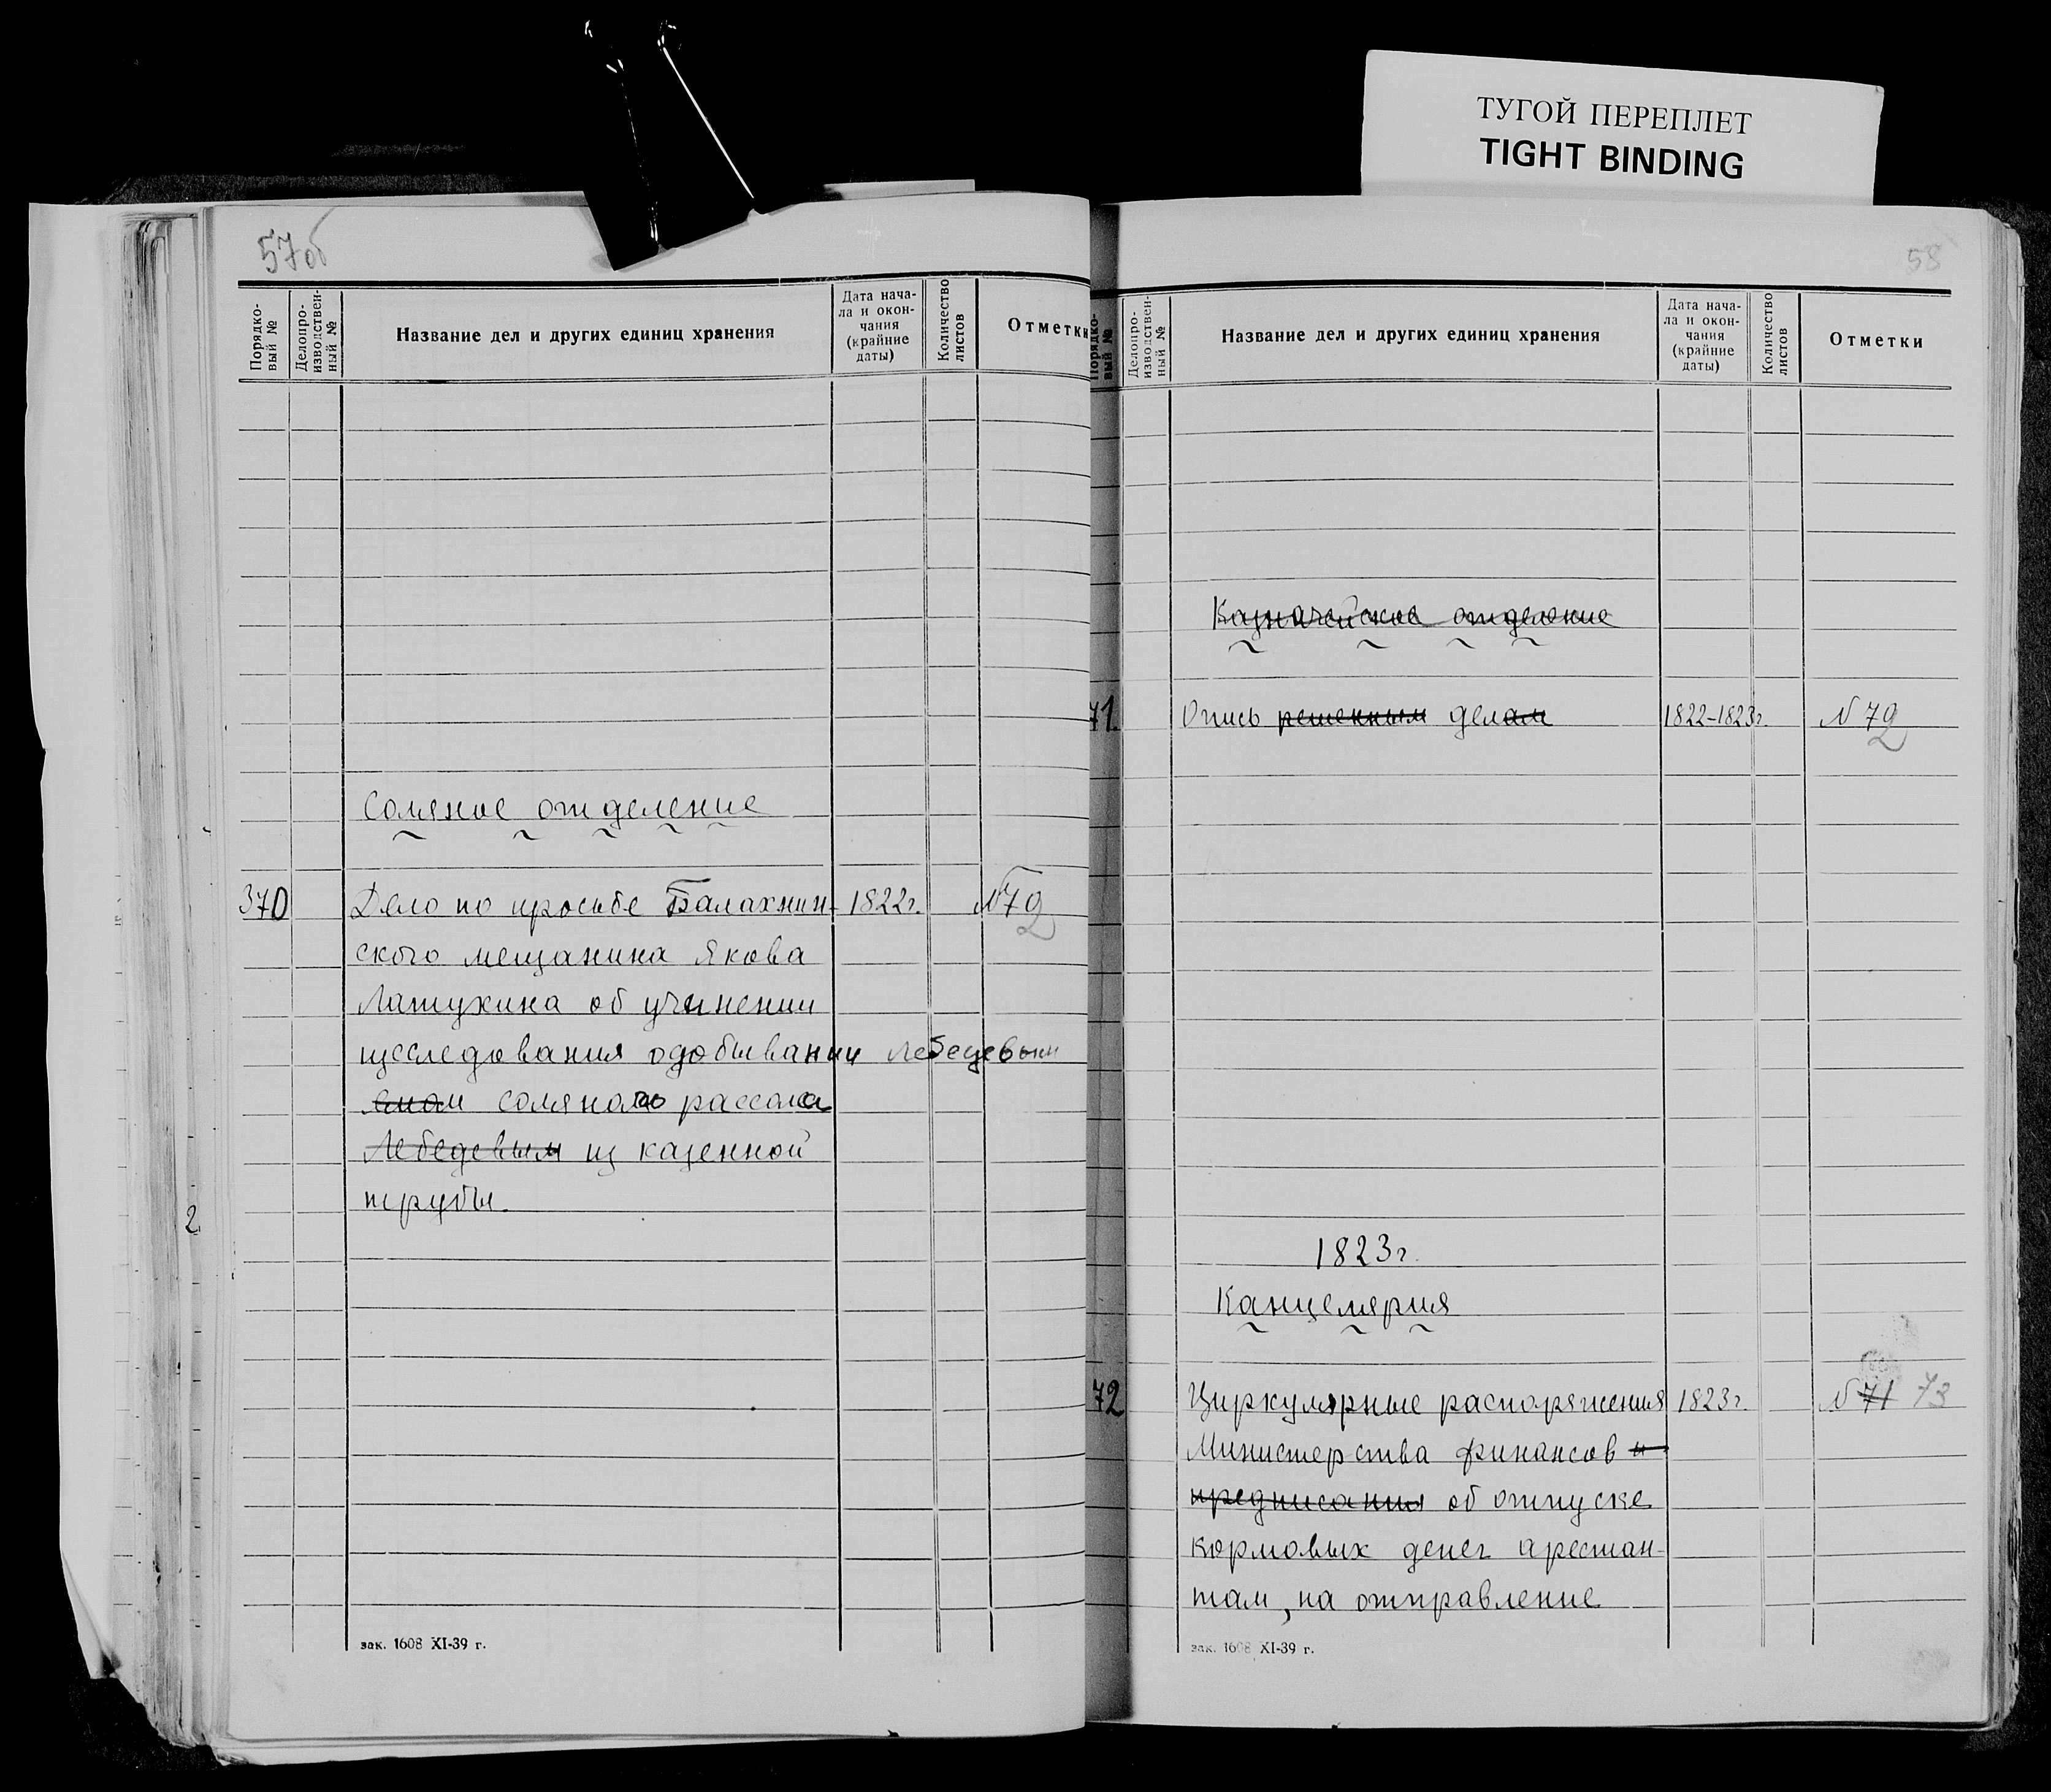 ТУГОЙ ПЕРЕПЛЕТ
TIGHT BINDING
57об
Порядко-
вый №
Делопро-
изводствен-
ный №
Название дел и других единиц хранения
Дата нача-
ла и окон-
чания
(крайние
даты)
Количество
листов
Отметки
Соляное отделение
370 Дело по просьбе Балахнин- 1822г. №72
ского мещанина Якова
Латухина об учинении
исследования о добывании Лебедевым
соляного рассола
Лебедевым из казенной
трубы.
зак. 1608 XI-39 г.
2
58
Порядко-
вый №
Делопро-
изводствен-
ный №
Название дел и других единиц хранения
Дата нача-
ла и окон-
чания
(крайние
даты)
Количество
листов
Отметки
Казначейское отделение
71. Опись решенным делам 1822-1823г. №72
1823г.
Канцелярия
72 Циркулярные распоряжения 1823г. №71 73
Министерства финансов и
предписания об отпуске
кормовых денег арестан-
там, на отправление
зак. 1608 XI-39 г.